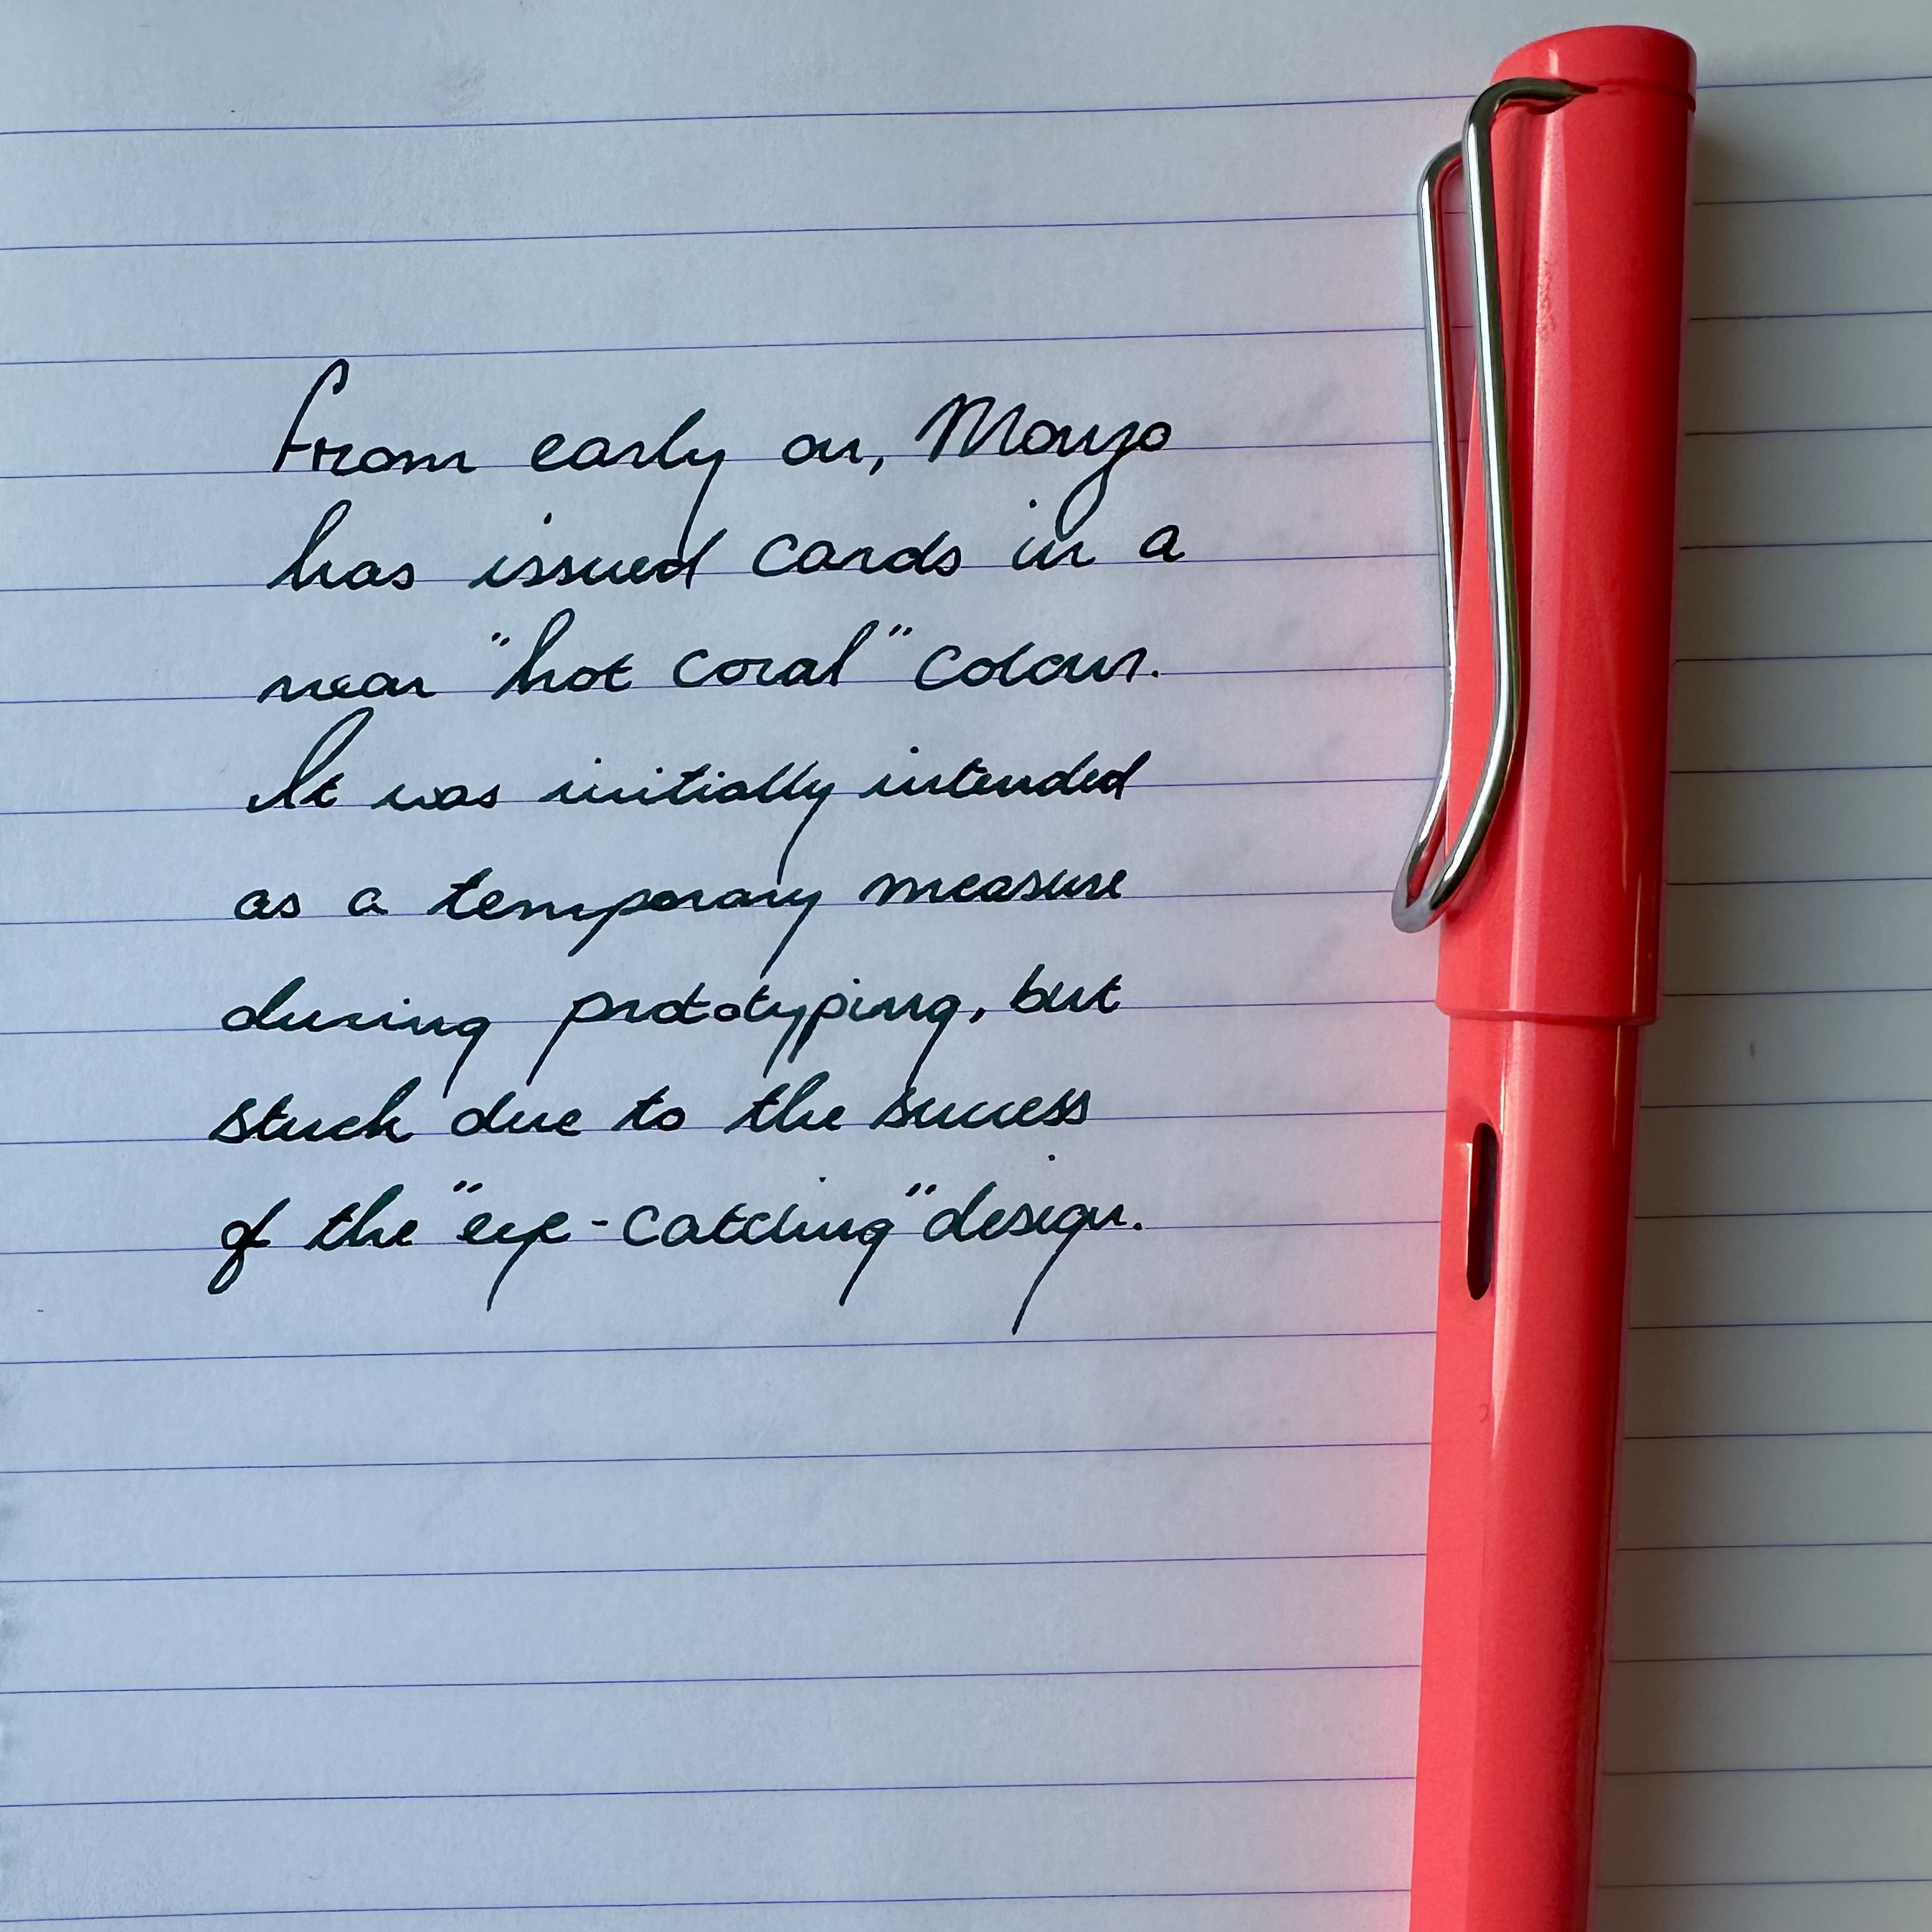 From early on, Monzo
has issued cards in a
near "hot coral" colour.
It was initially intended
as a temporary measure
during prototyping, but
stuck due to the success
of the "eye-catching" design.